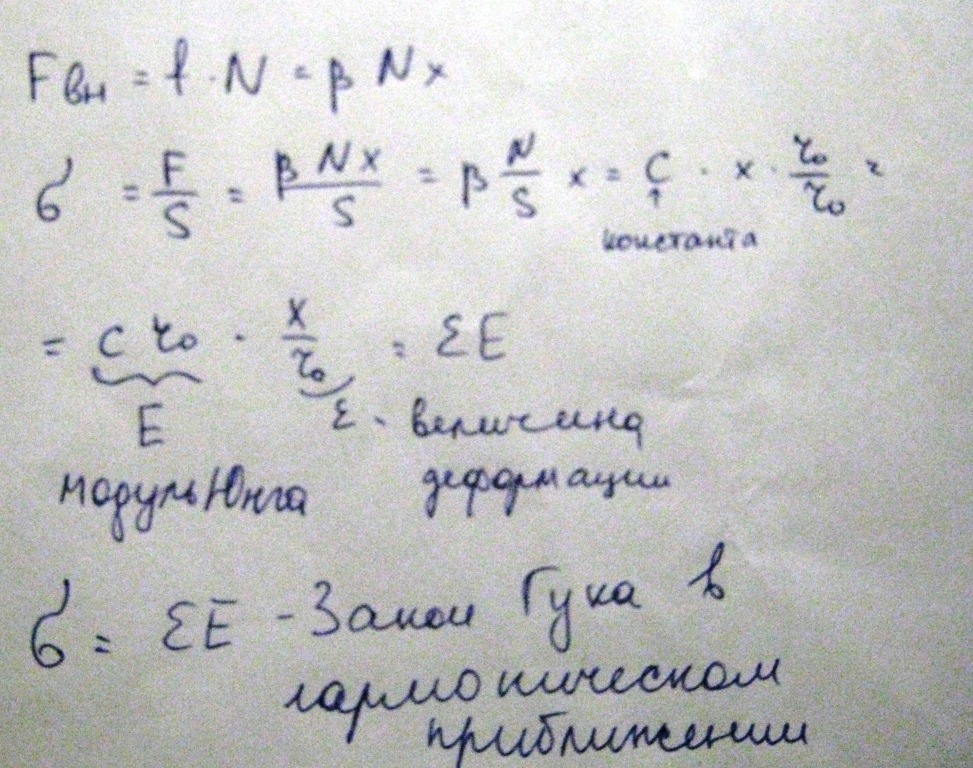 Fвн = f · N = β N x
σ = F/S = β N x/S = β N/S x = C · x · r₀/r₀ =
↑
константа
= C r₀ · x/r₀ = εE
E ε - величина
модуль Юнга деформации
σ = εE - Закон Гука в
гармоническом
приближении